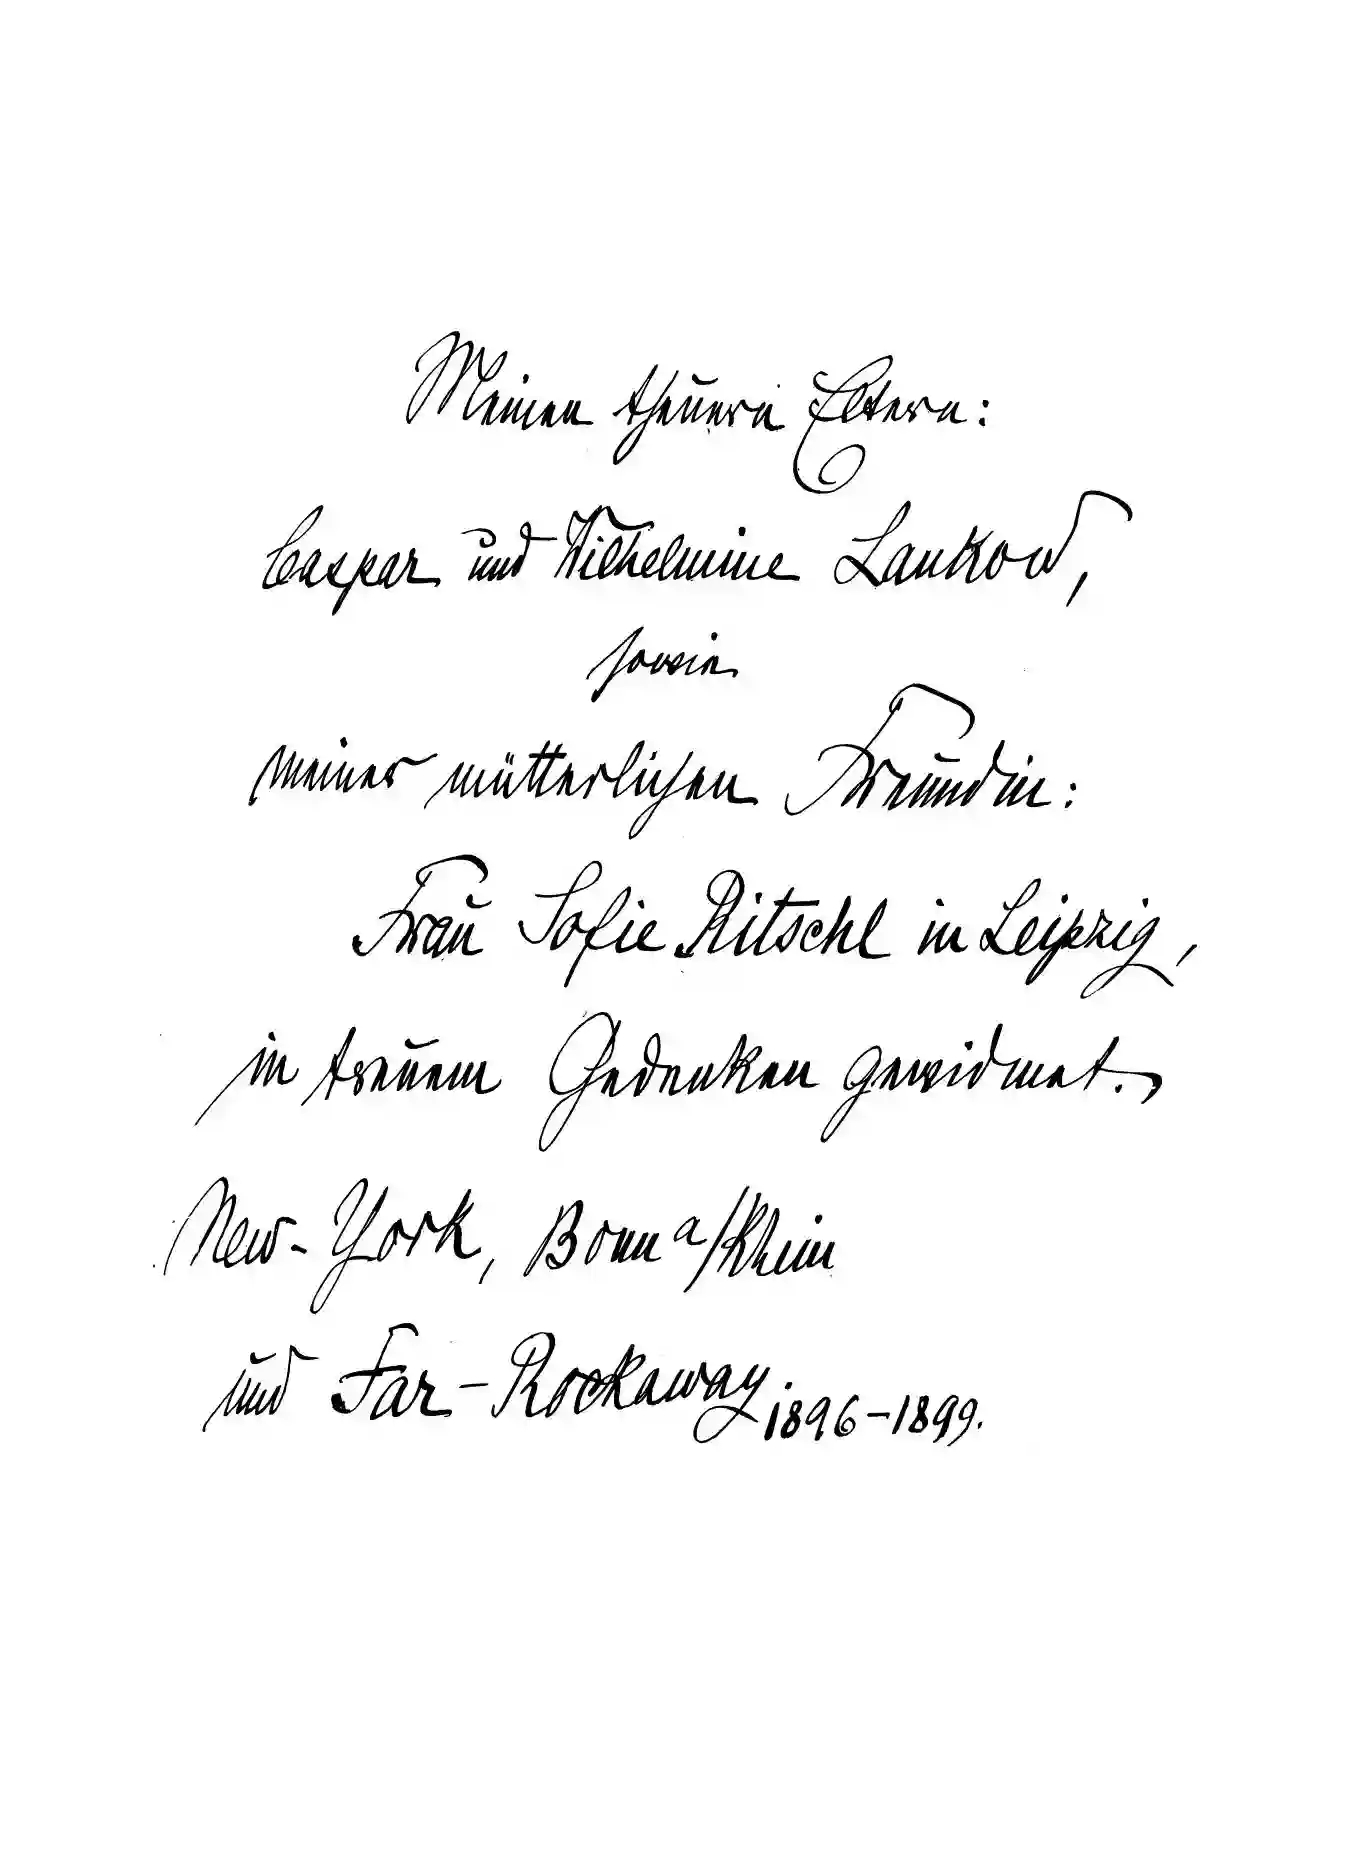 Meinen theuern Eltern:
Caspar und Wilhelmine Lankow,
sowie
meiner mütterlichen Freundin:
Frau Sofie Ritschl in Leipzig,
in treuem Gedenken gewidmet.
New-York, Bonn a/Rhein
und Far-Rockaway 1896-1899.